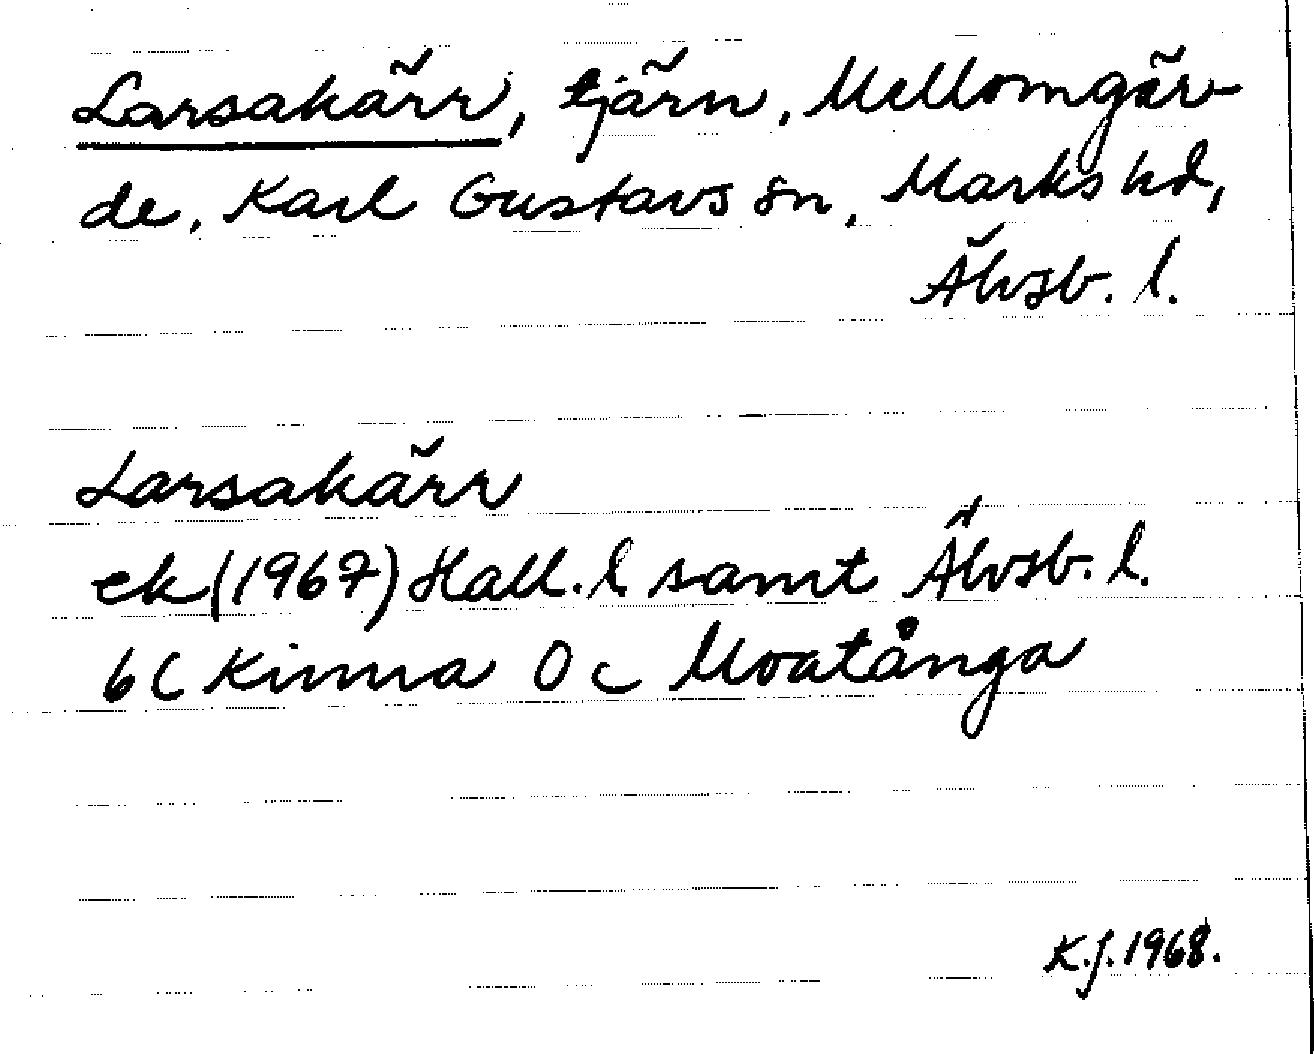 Larsakärr, tjärn, Mellomgär-
de, Karl Gustavs sn, Marks hd,
Älvsb. l.
Larsakärr
ek (1967) Hall. l samt Älvsb. l.
6C Kinna 0c Moatånga
K.J. 1968.